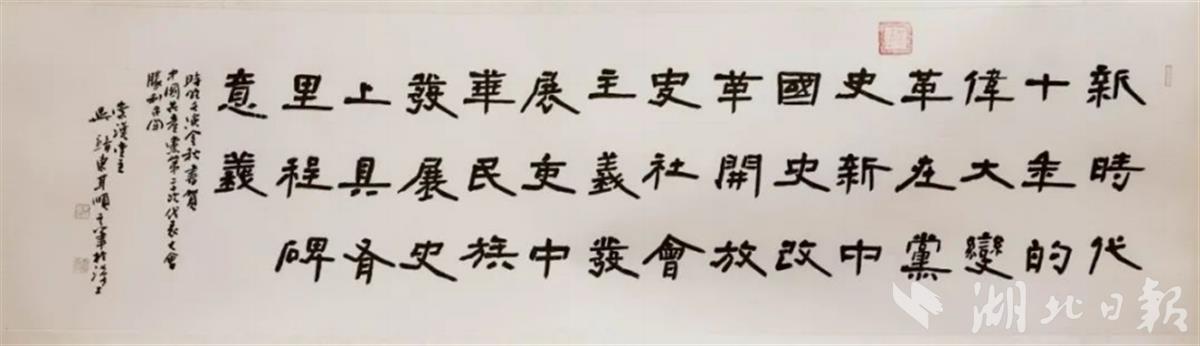 新時代
十年的
偉大變
革在黨
史新中
國史改
革開放
史社會
主義發
展史中
華民族
發展史
上具有
里程碑
意義
壬寅金秋書賀
中國共產黨第二十次代表大會
勝利召開
漢堂主
東耳順之筆於
湖北日報